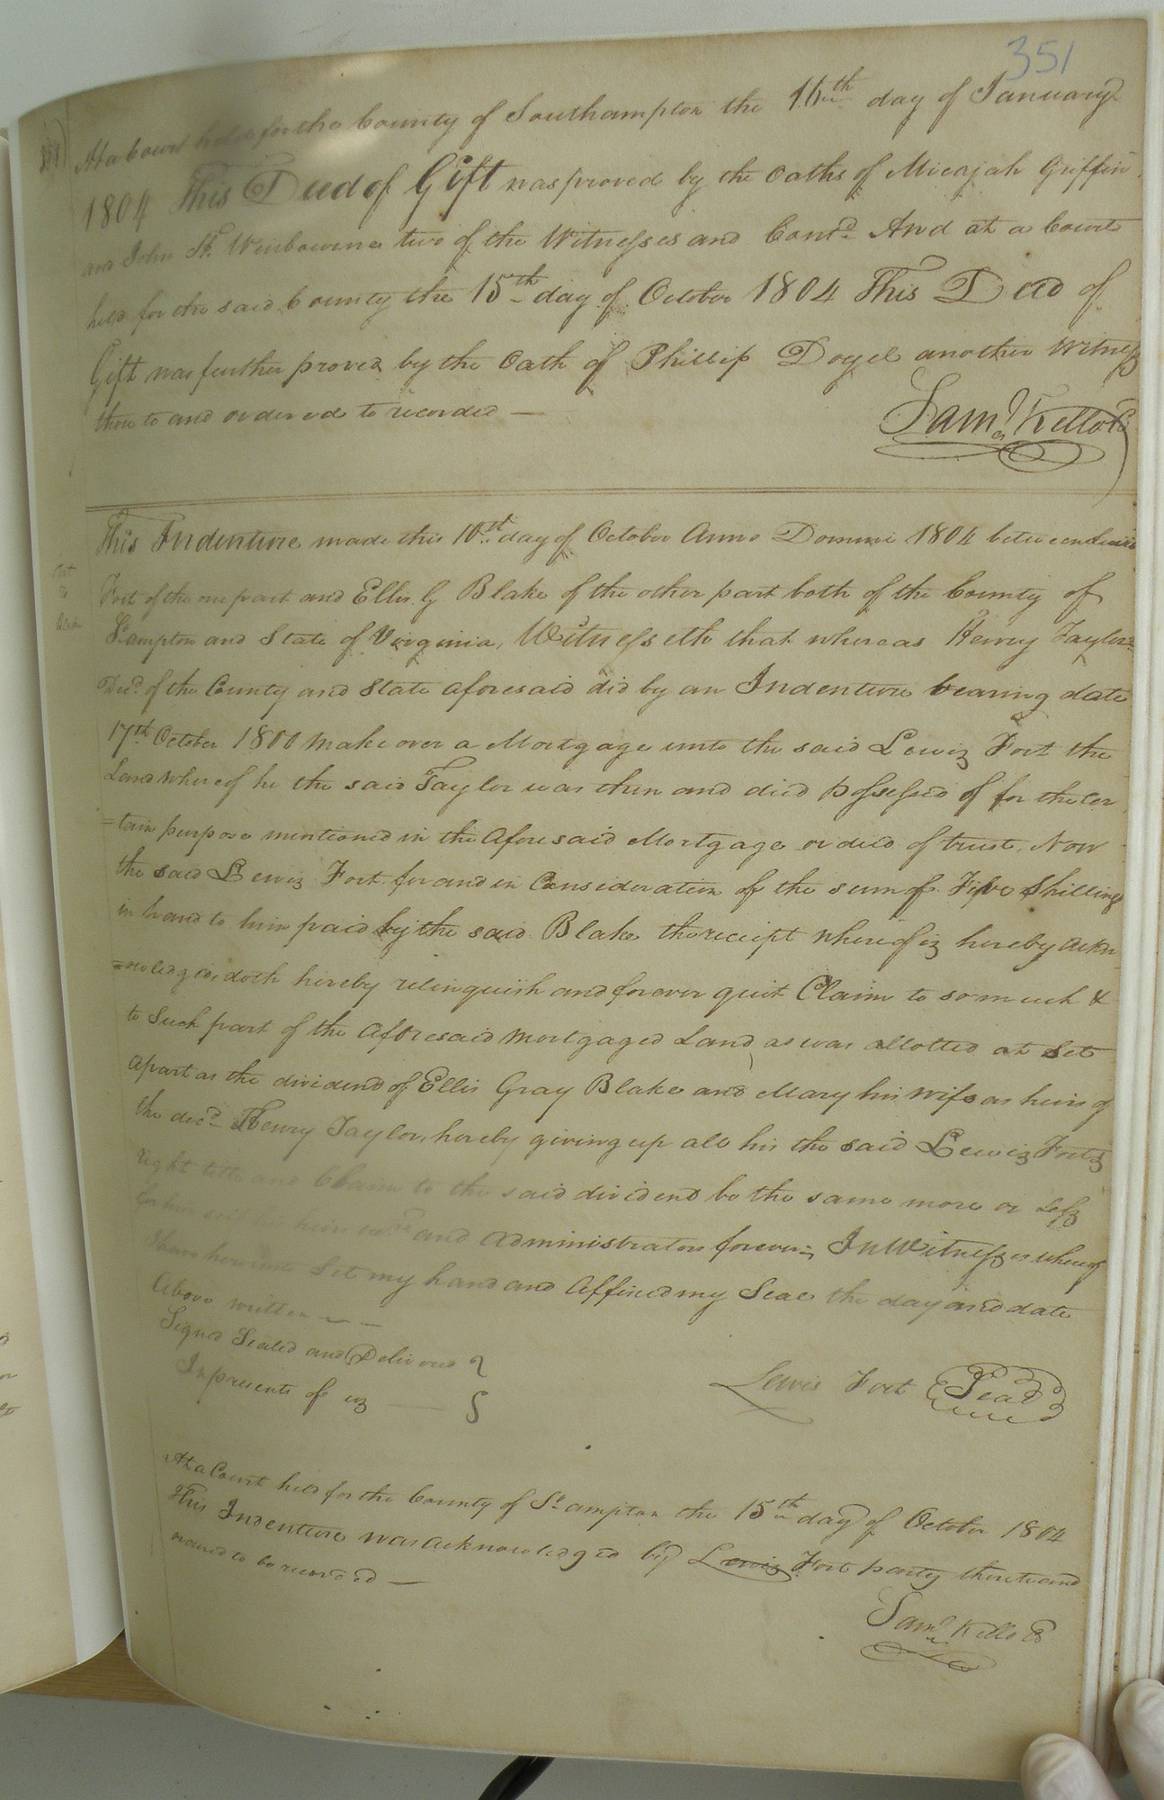 351
At a Court held for the County of Southampton the 16th day of January
1804 This Deed of Gift was proved by the Oaths of Micajah Griffin
and John St. Winbourne two of the Witnesses and Contd. And at a Court
held for the said County the 15th day of October 1804 This Deed of
Gift was further proved by the Oath of Phillip Doyel another Witness
thereto and ordered to recorded —
Saml. Kello Cl
This Indenture made this 10st day of October Anno Domini 1804 between Lewis
Fort
to
Blake
Fort of the one part and Ellis G Blake of the other part both of the County of
St.ampton and State of Virginia, Witnesseth that whereas Henry Taylor
Decd. of the County and State aforesaid did by an Indenture bearing date
17th October 1800 make over a Mortgage unto the said Lewis Fort the
Land whereof he the said Taylor was then and died possessed of for the cer
=tain purpose mentioned in the aforesaid Mortgage or deed of trust. Now
the said Lewis Fort for and in Consideration of the sum of Five Shillings
in hand to him paid by the said Blake the receipt whereof is hereby ackn
=owledged doth hereby relinquish and forever quit Claim to so much &
to Such part of the Afforesaid Mortgaged Land as was allotted at Sets
apart as the dividend of Ellis Gray Blake and Mary his wife as heirs of
the decd. Henry Taylor, hereby giving up all his the said Lewis Forts
right title and Claim to the said dividend be the same more or less
for him self heirs and Administrators forever; In Witness whereof
I have hereunto Set my hand and Affixed my Seal the day and date
Above written — —
Signed Sealed and Delivered
In presents of us
Lewis Fort Seal
At a Court held for the County of St.ampton the 15th day of October 1804
This Indenture was acknowledged by Lewis Fort party thereto and
ordered to be recorded —
Saml. Kello Cl